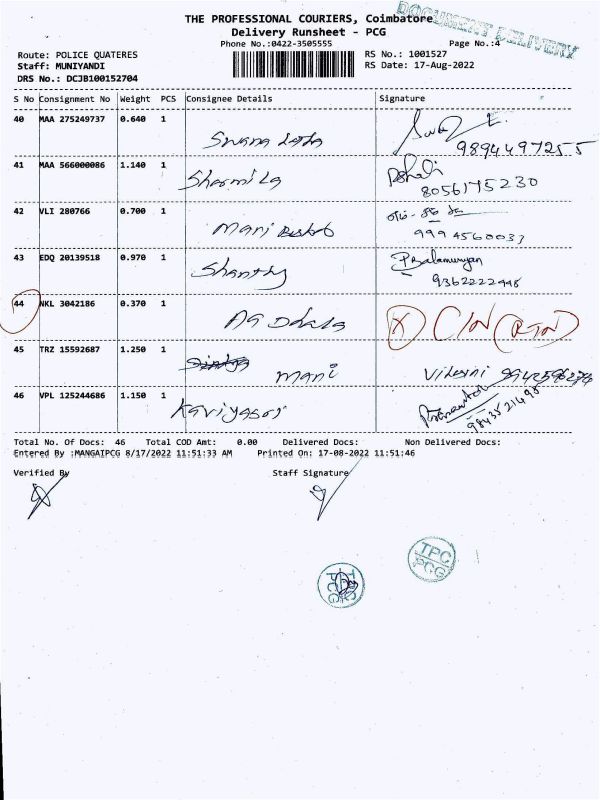 THE PROFESSIONAL COURIERS, Coimbatore
DOCUMENT DELIVERY
Delivery Runsheet - PCG
Phone No.:0422-3505555
Page No.:4
Route: POLICE QUATERES
RS No.: 1001527
Staff: MUNIYANDI
RS Date: 17-Aug-2022
DRS No.: DCJB100152704
S No Consignment No Weight PCS Consignee Details Signature
40 MAA 275249737 0.640 1 Swarna Latha 9894497255
41 MAA 566000086 1.140 1 Sharmila 8056175230
42 VLI 280766 0.700 1 Mani 9994560033
43 EDQ 20139518 0.970 1 Shanthy P Balamurugan 9362222448
44 NKL 3042186 0.370 1 X C/N (RTN)
45 TRZ 15592687 1.250 1 Mani
46 VPL 125244686 1.150 1 9843521495
Total No. Of Docs: 46 Total COD Amt: 0.00 Delivered Docs: Non Delivered Docs:
Entered By :MANGAIPCG 8/17/2022 11:51:33 AM Printed On: 17-08-2022 11:51:46
Verified By Staff Signature
TPC
PCG
TPC
PCG